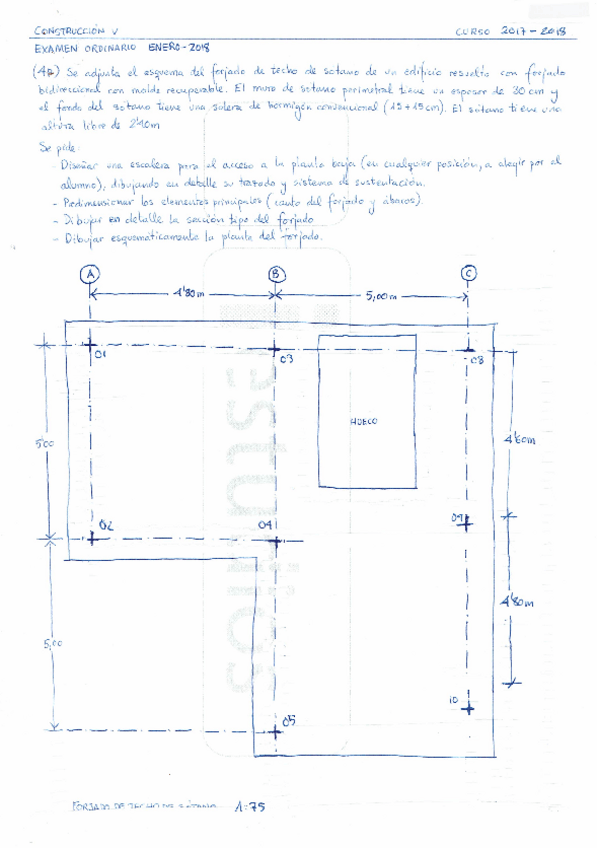 CONSTRUCCIÓN V CURSO 2017-2018
EXAMEN ORDINARIO ENERO-2018
(4P.) Se adjunta el esquema del forjado de techo de sótano de un edificio resuelto con forjado
bidireccional con molde recuperable. El muro de sótano perimetral tiene un espesor de 30 cm y
el fondo del sótano tiene una solera de hormigón convencional (15+15cm). El sótano tiene una
altura libre de 2'40m
Se pide:
- Diseñar una escalera para el acceso a la planta baja (en cualquier posición, a elegir por el
alumno), dibujando en detalle su trazado y sistema de sustentación.
- Predimensionar los elementos principales (canto del forjado y ábacos)
- Dibujar en detalle la sección tipo del forjado
- Dibujar esquemáticamente la planta del forjado.
A B C
4'80m 5,00m
01 03 08
HUECO
5'00 4'60m
02 04 09
4'80m
5,00
10
05
FORJADO DE TECHO DE SÓTANO 1:75